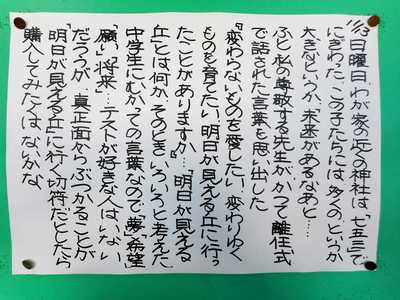 11/13日曜日、わが家の近くの神社は「七五三」で
にぎわう。この子たちには「多くの」というか
大きなというか、未来があるなあと…
ふと、私の尊敬する先生がかつて離任式
で話された言葉を思い出した。
『変わらないものを愛したい。変わりゆく
ものを育てたい。明日が見える丘に行っ
たことがありますか。』「明日が見える
丘」とは何か、そのときいろいろと考えた。
中学生にむかっての言葉なので「夢」「希望」
「願い」「将来」…テストが好きな人はいない
だろうが、真正面からぶつかることが
「明日が見える丘」に行く切符だとしたら
購入してみたくはないかな。